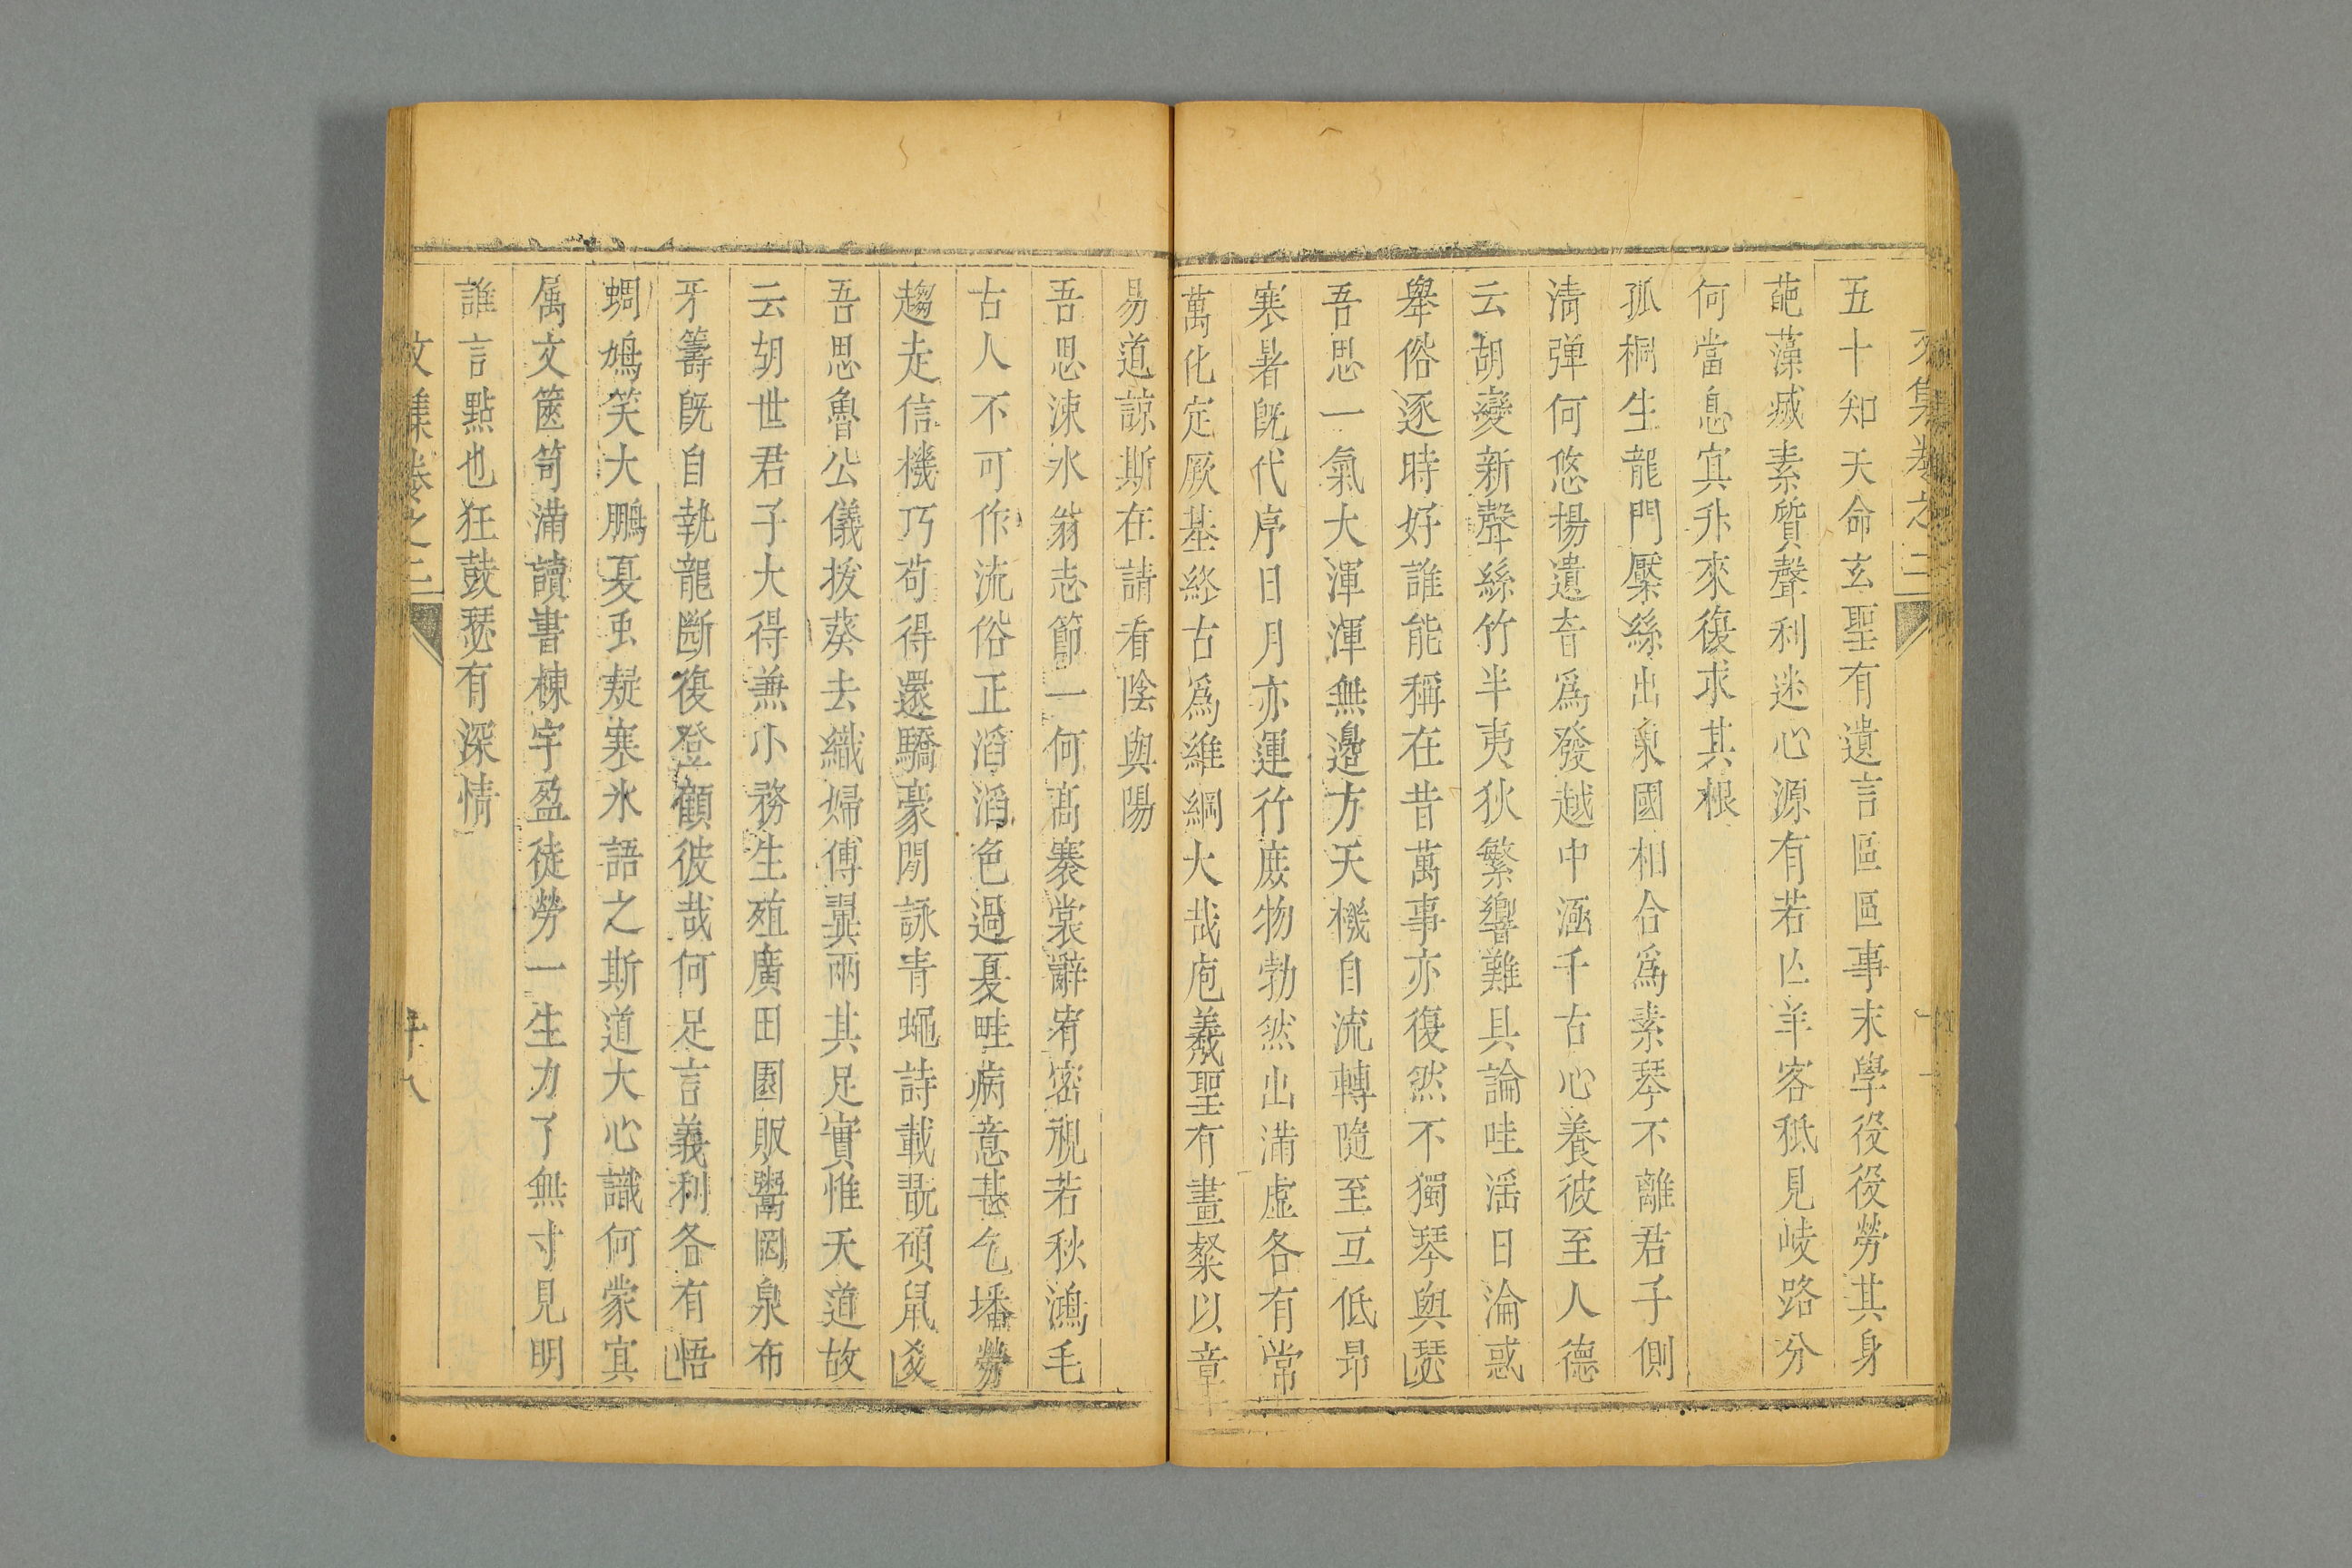 文集卷之二
五十知天命玄聖有遺言區區事末學役役勞其身
葩藻滅素質聲利迷心源有若亾羊客秪見岐路分
何當息冥升來復求其根
孤桐生龍門檿絲出東國相合爲素琴不離君子側
清弹何悠揚遺音爲發越中涵千古心養彼至人德
云胡變新聲絲竹半夷狄繁響難具論哇滛日淪惑
舉俗逐時好誰能稱在昔萬事亦復然不獨琴與瑟
吾思一氣大渾渾無邊方天機自流轉隨至互低昻
寒暑旣代序日月亦運行庶物勃然出滿虛各有常
萬化定厥基終古爲維綱大哉庖羲聖有畫粲以章
易道諒斯在請看陰與陽
吾思涑水翁志節一何高褰裳辭宥密視若秋鴻毛
古人不可作流俗正滔滔色過夏畦病意甚乞墦勞
趨走信機巧苟得還驕豪閒詠青蠅詩載翫碩鼠爻
吾思魯公儀拔葵去織婦傅翼兩其足實惟天道故
云胡世君子大得兼小務生殖廣田園販鬻罔泉布
牙籌旣自執龍斷復登顧彼哉何足言義利各有悟
蜩鳩笑大鵬夏虫疑寒氷語之斯道大心識何蒙冥
属文篋笥滿讀書棟宇盈徒勞一生力了無寸見明
誰言點也狂鼓瑟有深情
文集卷之二
十八